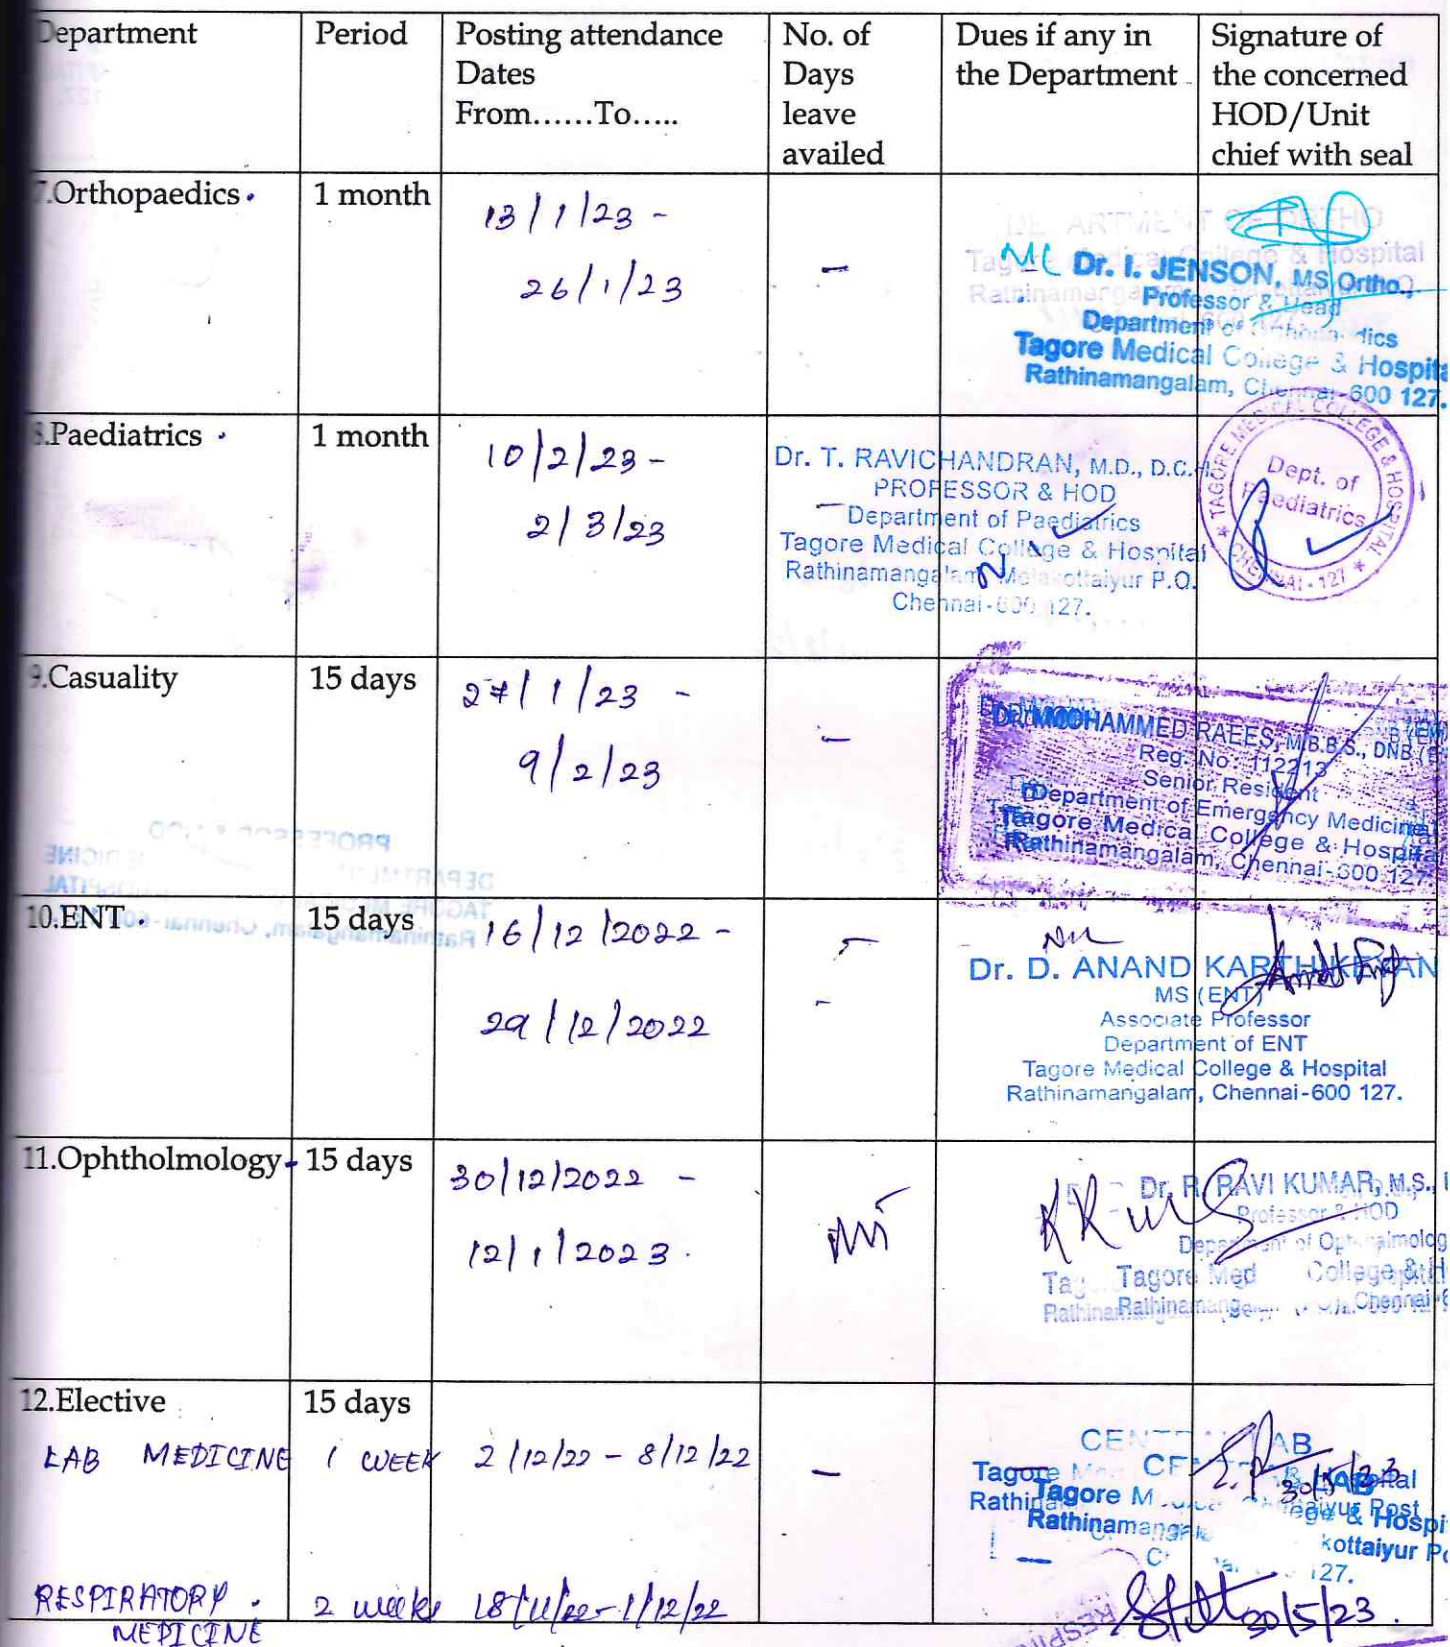 Department Period Posting attendance Dates From......To..... No. of Days leave availed Dues if any in the Department Signature of the concerned HOD/Unit chief with seal
7.Orthopaedics 1 month 13/1/23 - 26/1/23 –
Dr. I. JENSON, MS Ortho.,
Professor & Head
Department of
Tagore Medical College & Hospital
Rathinamangalam, Chennai-600 127.
8.Paediatrics 1 month 10/2/23 - 2/3/23 –
Dr. T. RAVICHANDRAN, M.D., D.C.H.
PROFESSOR & HOD
Department of Paediatrics
Tagore Medical College & Hospital
Rathinamangalam, Melakottaiyur P.O.
Chennai-600 127.
TAGORE MEDICAL COLLEGE & HOSPITAL
Dept. of
Paediatrics
CHENNAI-127
9.Casuality 15 days 27/1/23 - 9/2/23 –
MOHAMMED RAEES, M.B.B.S., DNB
Reg. No: 112213
Senior Resident
Department of Emergency Medicine
Tagore Medical College & Hospital
Rathinamangalam, Chennai-600 127
10.ENT 15 days 16/12/2022 - 29/12/2022 –
Dr. D. ANAND KARTHIKEYAN
MS (ENT)
Associate Professor
Department of ENT
Tagore Medical College & Hospital
Rathinamangalam, Chennai-600 127.
11.Ophtholmology 15 days 30/12/2022 - 12/1/2023.
Dr. R. RAVI KUMAR, M.S.,
Professor & HOD
Tagore Med College & H
12.Elective 15 days
LAB MEDICINE 1 WEEK 2/12/22 - 8/12/22 –
LAB
30/5/23
Tagore
RESPIRATORY MEDICINE 2 weeks 18/11/22 - 1/12/22
30/5/23.